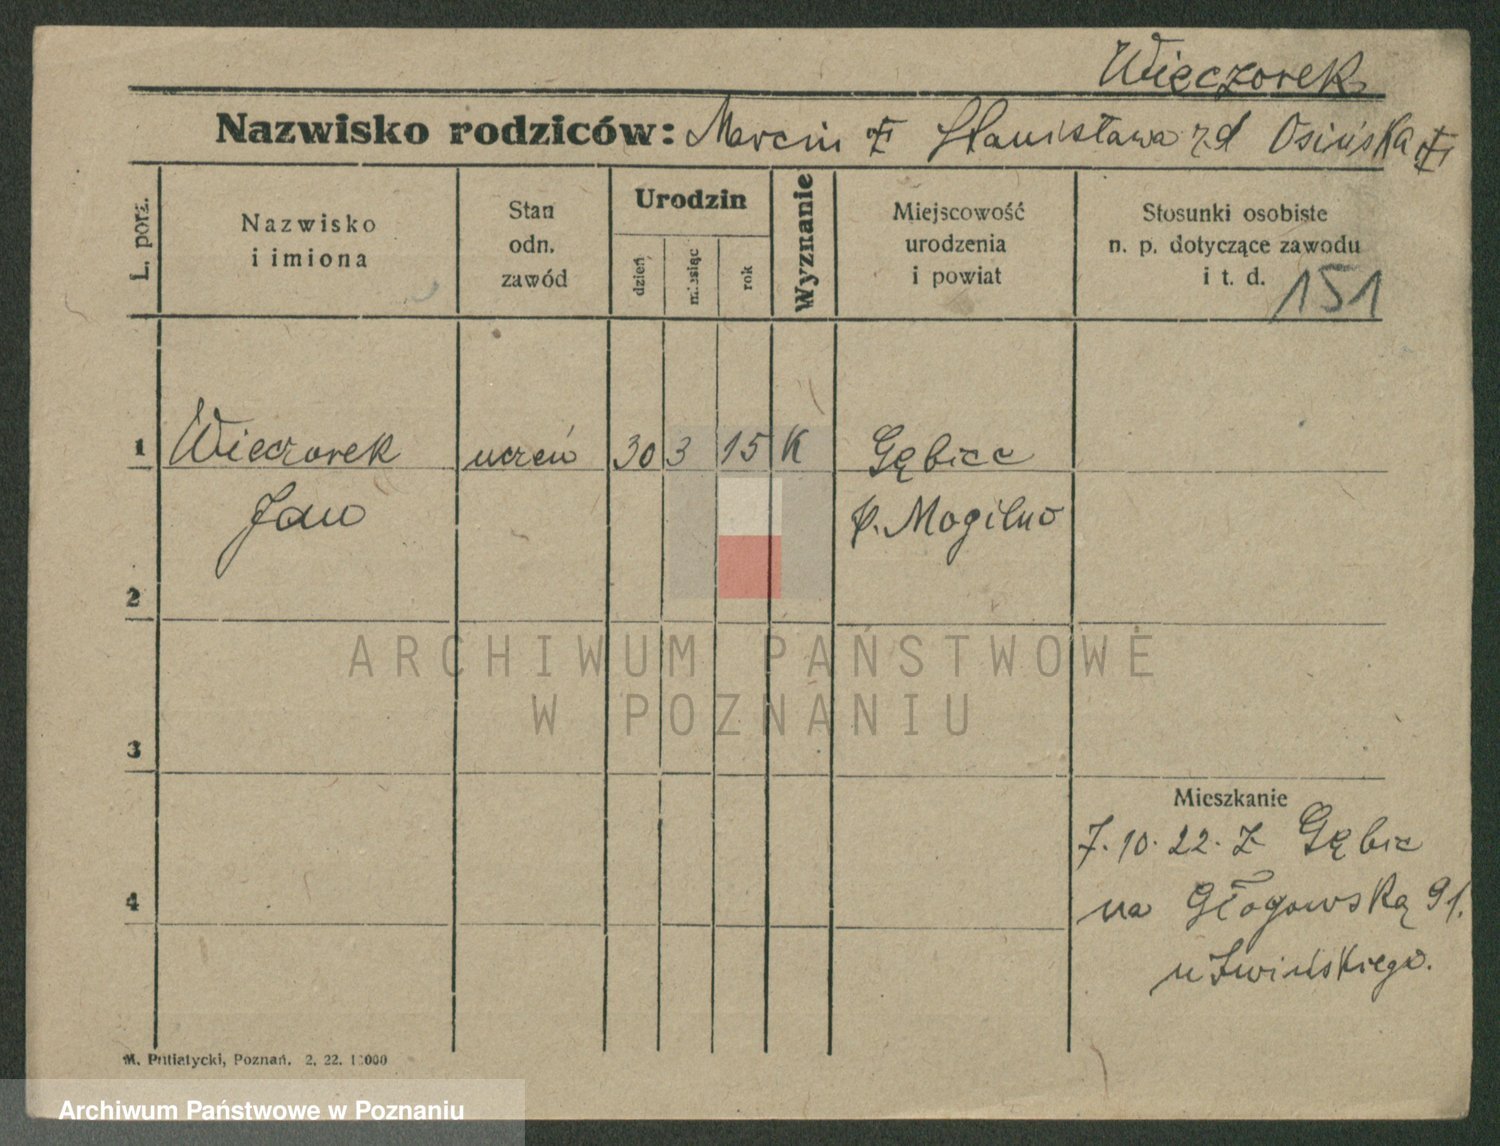 Wieczorek
Nazwisko rodziców: Marcin Stanisława z d Osińska
L. porz.
Nazwisko
i imiona
Stan
odn.
zawód
Urodzin
dzień
miesiąc
rok
Wyznanie
Miejscowość
urodzenia
i powiat
Stosunki osobiste
n. p. dotyczące zawodu
i t. d.
151
1 Wieczorek uczeń 30 3 15 K Gębice
Jan p. Mogilno
2
3
4
Mieszkanie
7.10.22. z Gębic
na Głogowską 91.
u
M. Putiatycki, Poznań. 2. 22.
ARCHIWUM PAŃSTWOWE
W POZNANIU
Archiwum Państwowe w Poznaniu